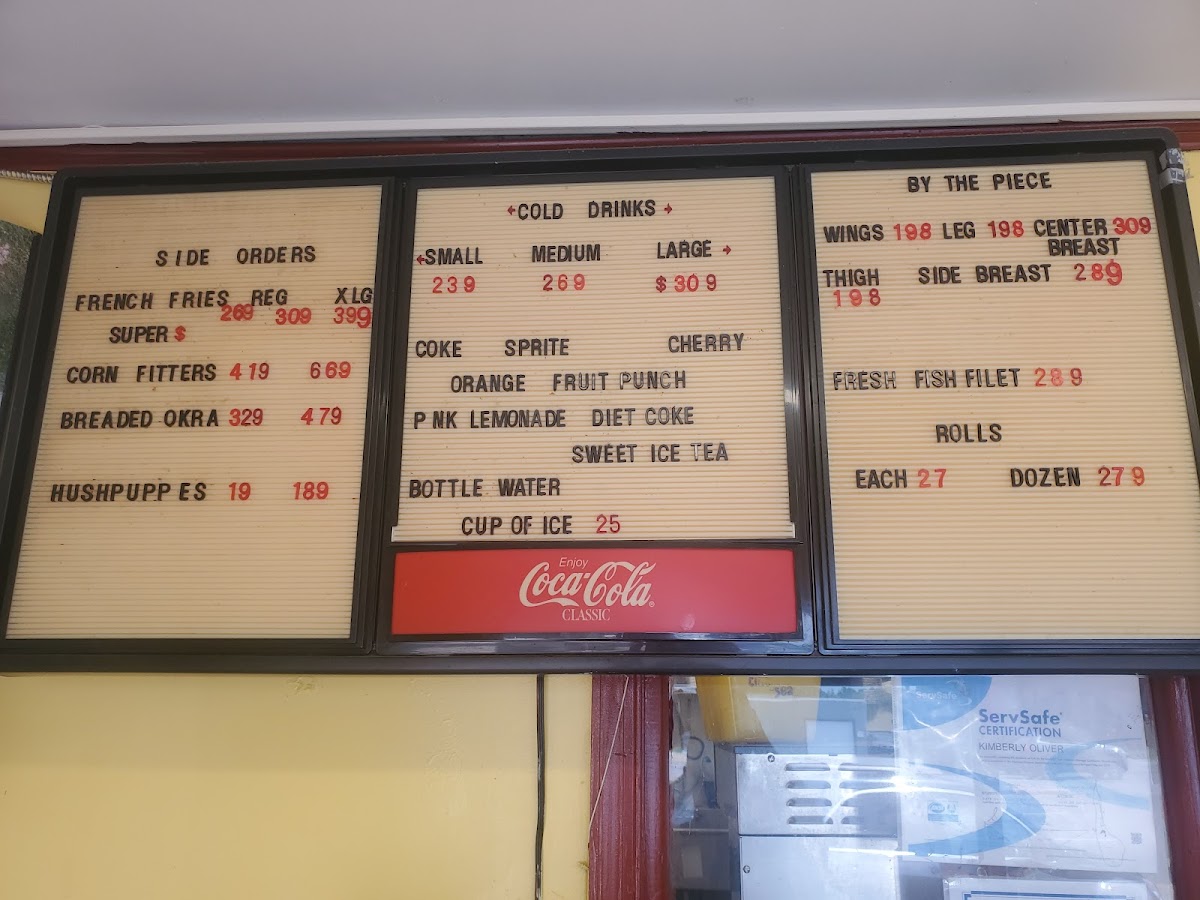 SIDE ORDERS
FRENCH FRIES REG XLG
269 309 399
SUPER $
CORN FITTERS 419 669
BREADED OKRA 329 479
HUSHPUPP ES 19 189
COLD DRINKS
SMALL MEDIUM LARGE
239 269 $309
COKE SPRITE CHERRY
ORANGE FRUIT PUNCH
P NK LEMONADE DIET COKE
SWEET ICE TEA
BOTTLE WATER
CUP OF ICE 25
Enjoy
Coca-Cola
CLASSIC
BY THE PIECE
WINGS 198 LEG 198 CENTER 309
BREAST
THIGH SIDE BREAST 289
198
FRESH FISH FILET 289
ROLLS
EACH 27 DOZEN 279
ServSafe
ServSafe
CERTIFICATION
KIMBERLY OLIVER